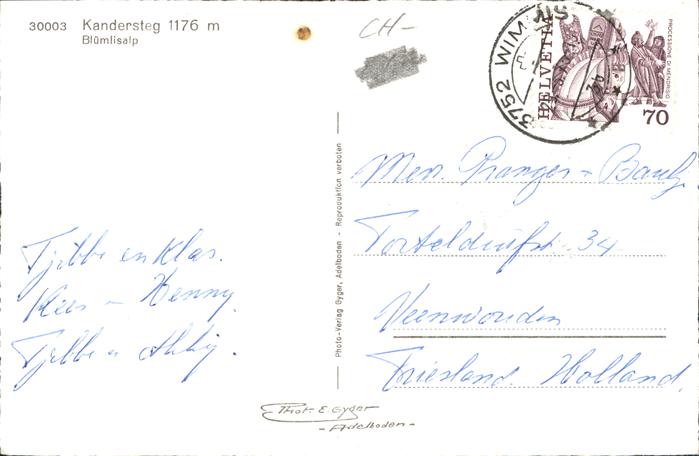 30003 Kandersteg 1176 m
Blümlisalp
CH-
3752 WIMMIS
HELVETIA
PROCESSIONI DI MENDRISIO
70
Photo-Verlag Gyger, Adelboden - Reproduktion verboten
Tjibbe en Klas.
Kees - Henny
Tjibbe
Pranger -
34
Veenwouden
Friesland. Holland.
Phot. E. Gyger
- Adelboden -